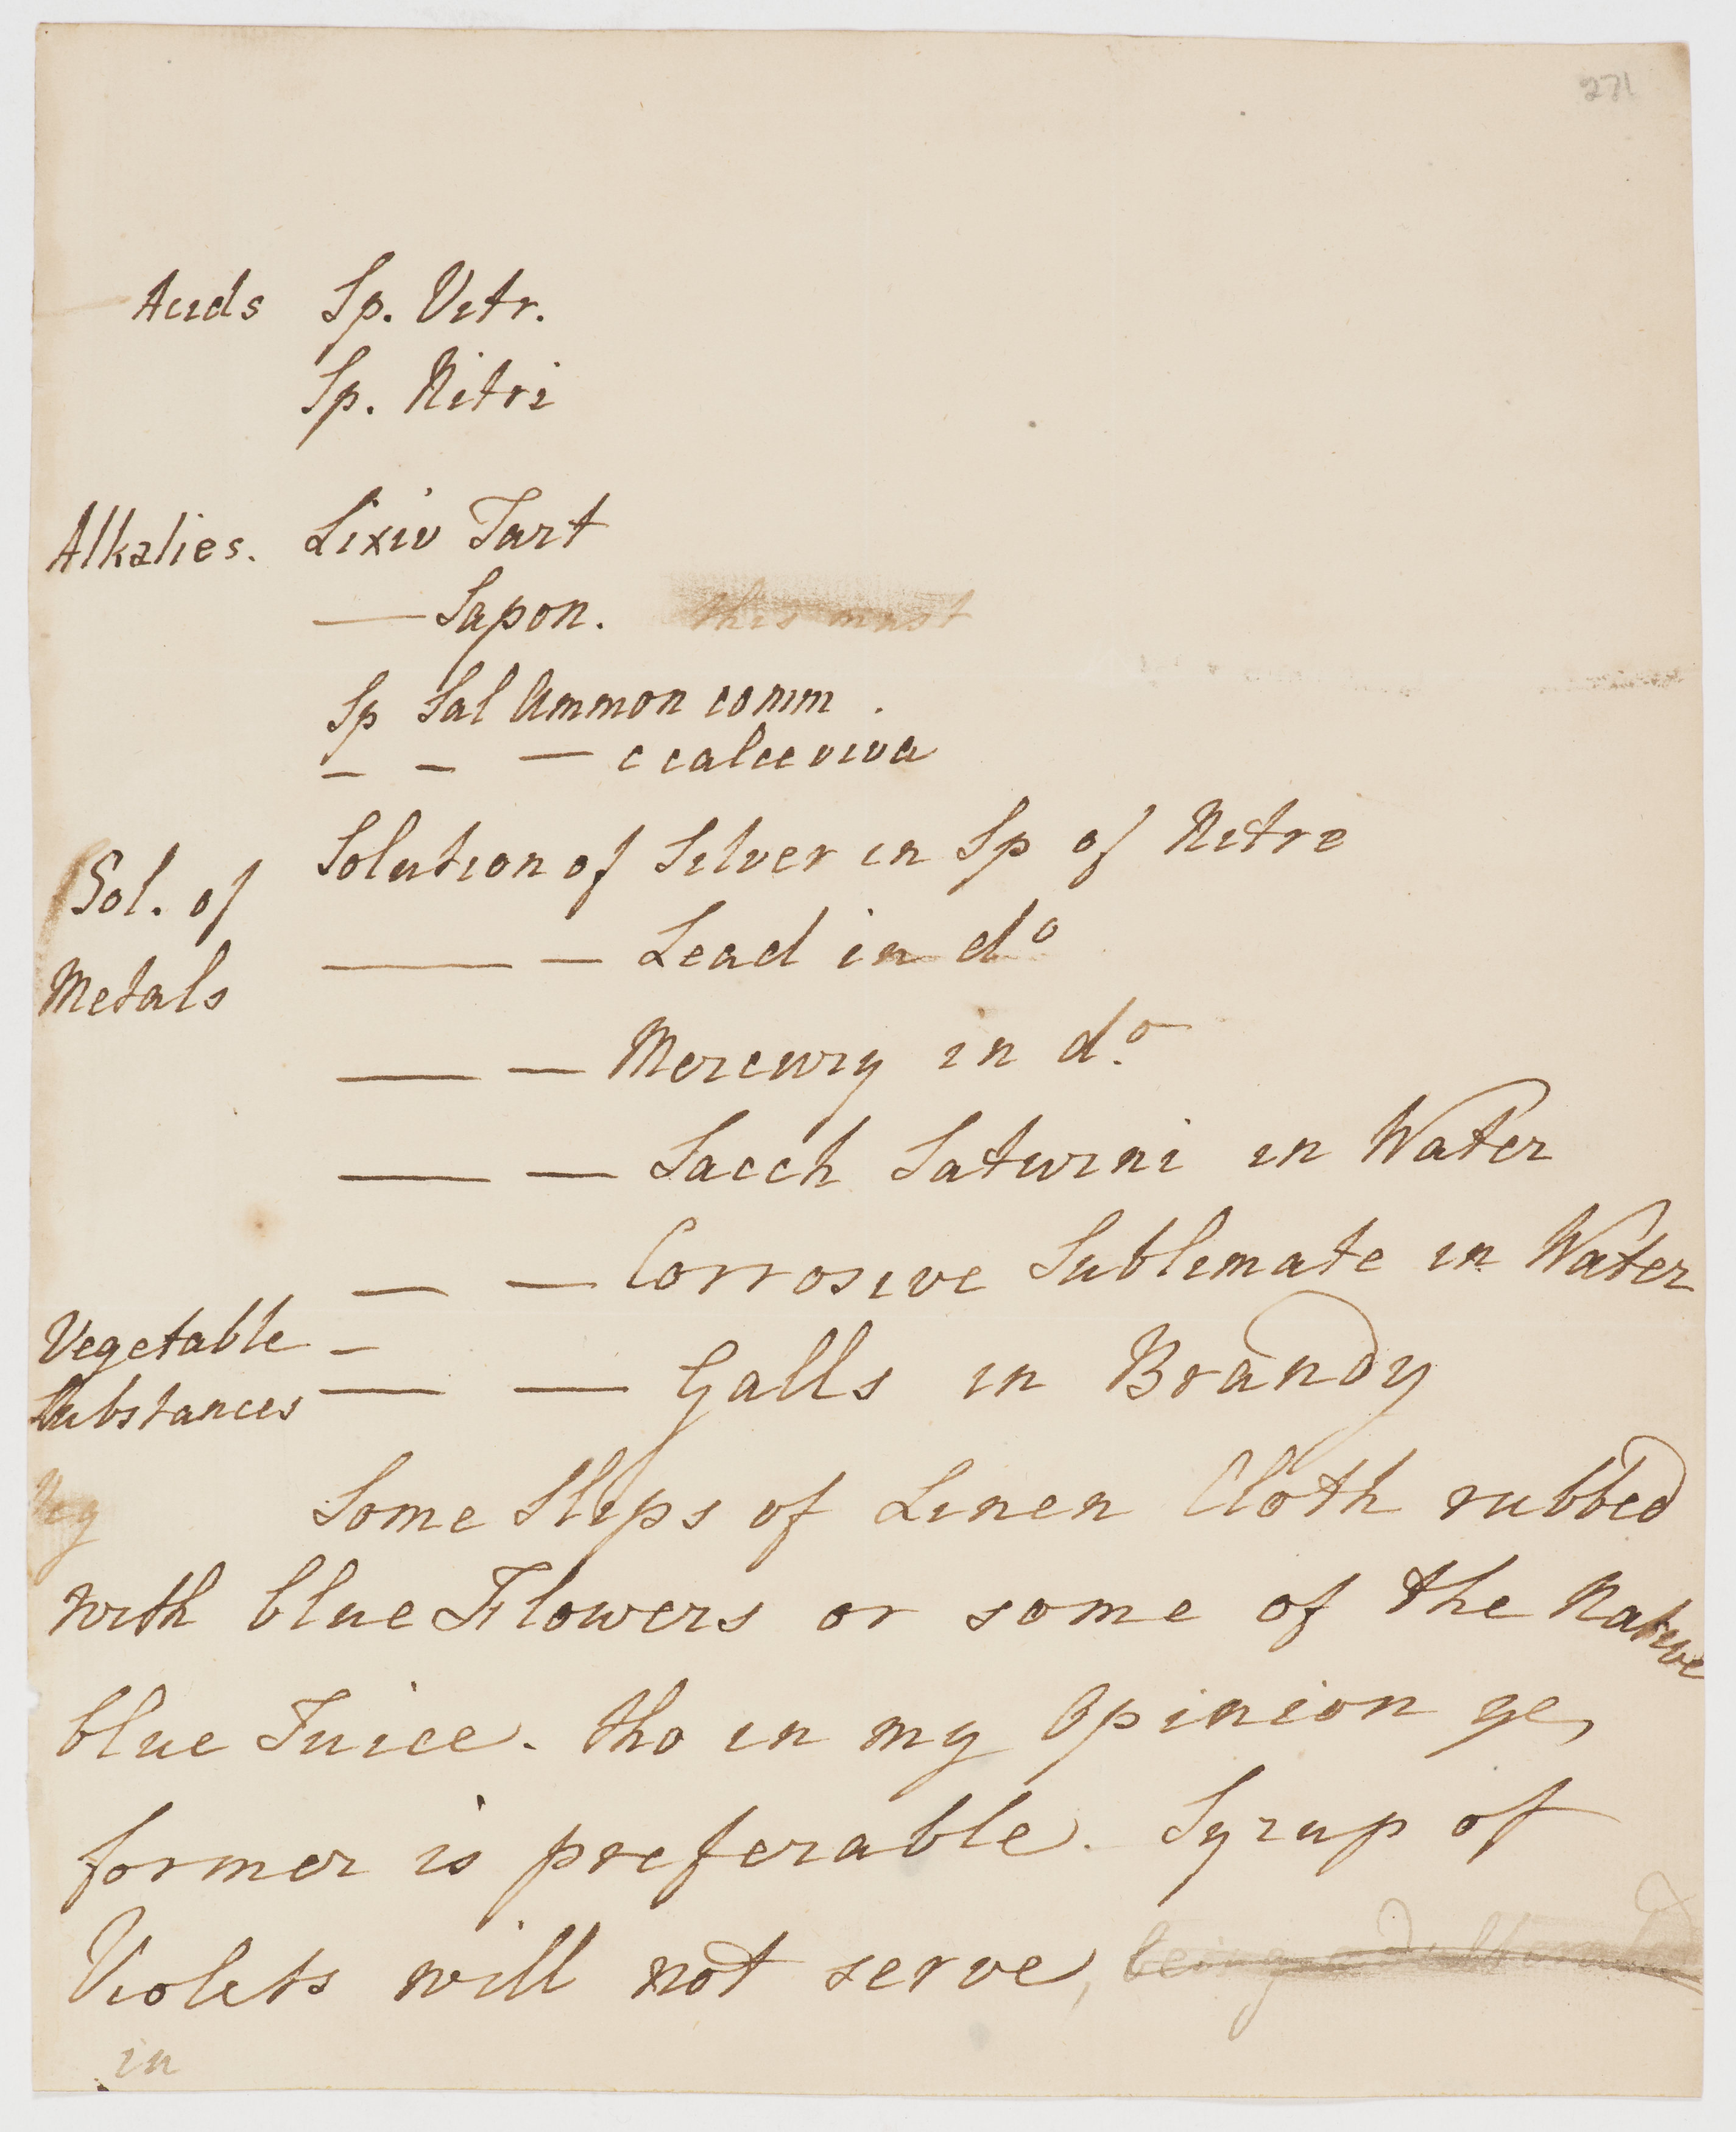 271
Acids Sp. Vitr.
Sp. Nitri
Alkalies. Lixiv Tart
— Sapon. this must
Sp Sal Ammon comm .
– – — c calce viva
Solution of Silver in Sp of Nitre
Sol. of
— — Lead in d°
Metals
— — Mercury in d.°
— — Sacch Saturni in Water
— — Corrosive Sublimate in Water
Vegetable –
Substances — — Galls in Brandy
Veg Some Slips of Linen Cloth rubbed
with blue Flowers or some of the Native
blue Juice. tho in my Opinion ye,
former is preferable. Syrup of
Violets will not serve, being
in